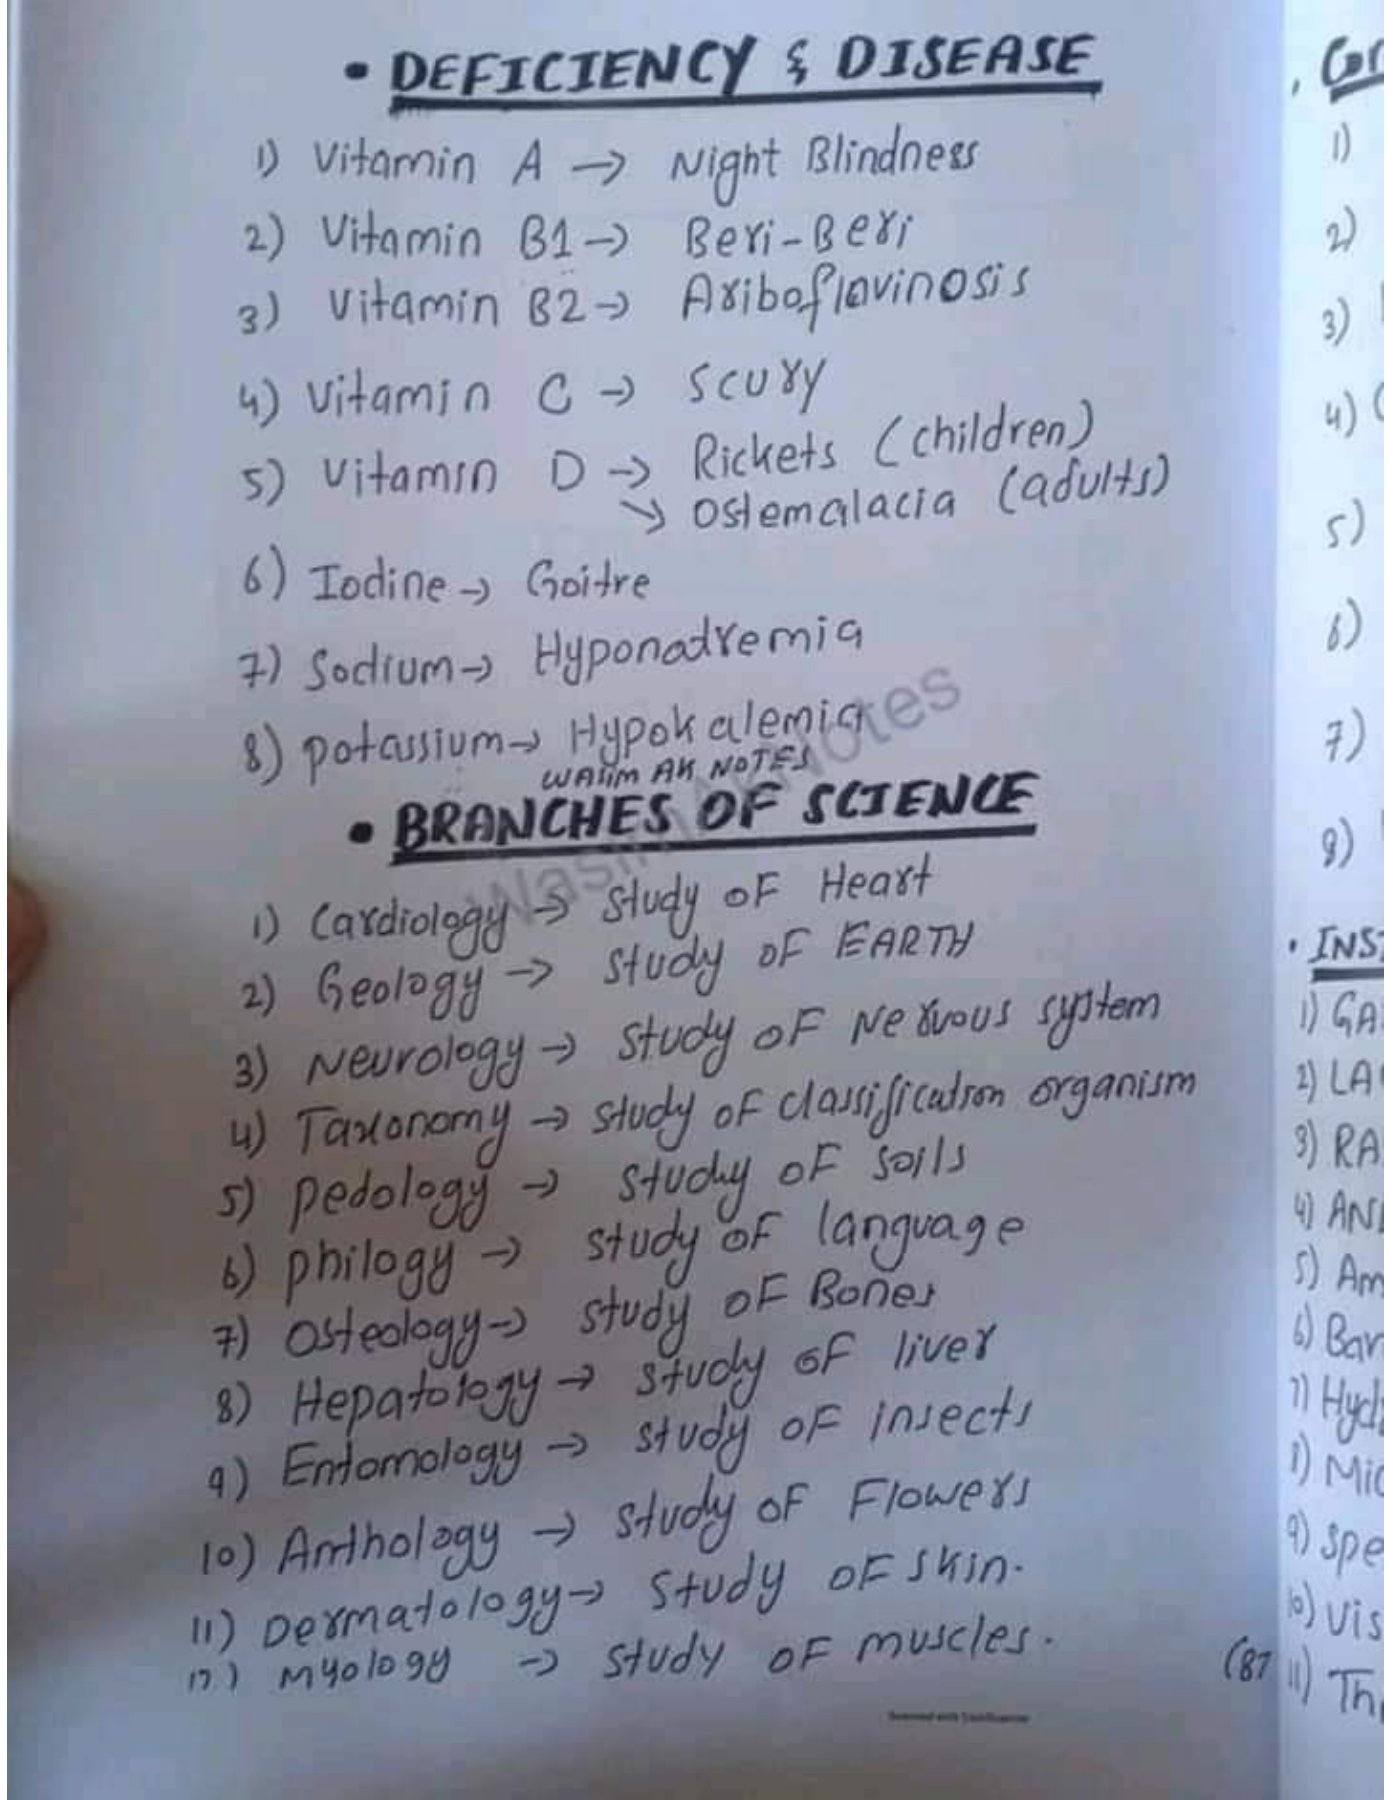 • DEFICIENCY & DISEASE
1) Vitamin A → Night Blindness
2) Vitamin B1 → Beri-Beri
3) Vitamin B2 → Ariboflavinosis
4) Vitamin C → Scury
5) Vitamin D → Rickets (children)
→ Ostemalacia (adults)
6) Iodine → Goitre
7) Sodium → Hyponadremia
8) potassium → Hypokalemia
WASIM AK NOTES
• BRANCHES OF SCIENCE
1) Cardiology → Study OF Heart
2) Geology → Study OF EARTH
3) Neurology → Study OF Nervous system
4) Taxonomy → Study OF classification organism
5) pedology → Study OF Soils
6) philogy → study OF language
7) Osteology → study OF Bones
8) Hepatology → study OF liver
9) Entomology → study OF insects
10) Anthology → study OF Flowers
11) Dermatology → Study OF skin.
12) Myology → study OF muscles.
(87
1)
2)
3)
4)
5)
6)
7)
8)
1) GA
2) LA
3) RA
4) AN
5) Am
6) Bar
7) Hyd
8) Mic
9) Spe
10) Vis
11) Th